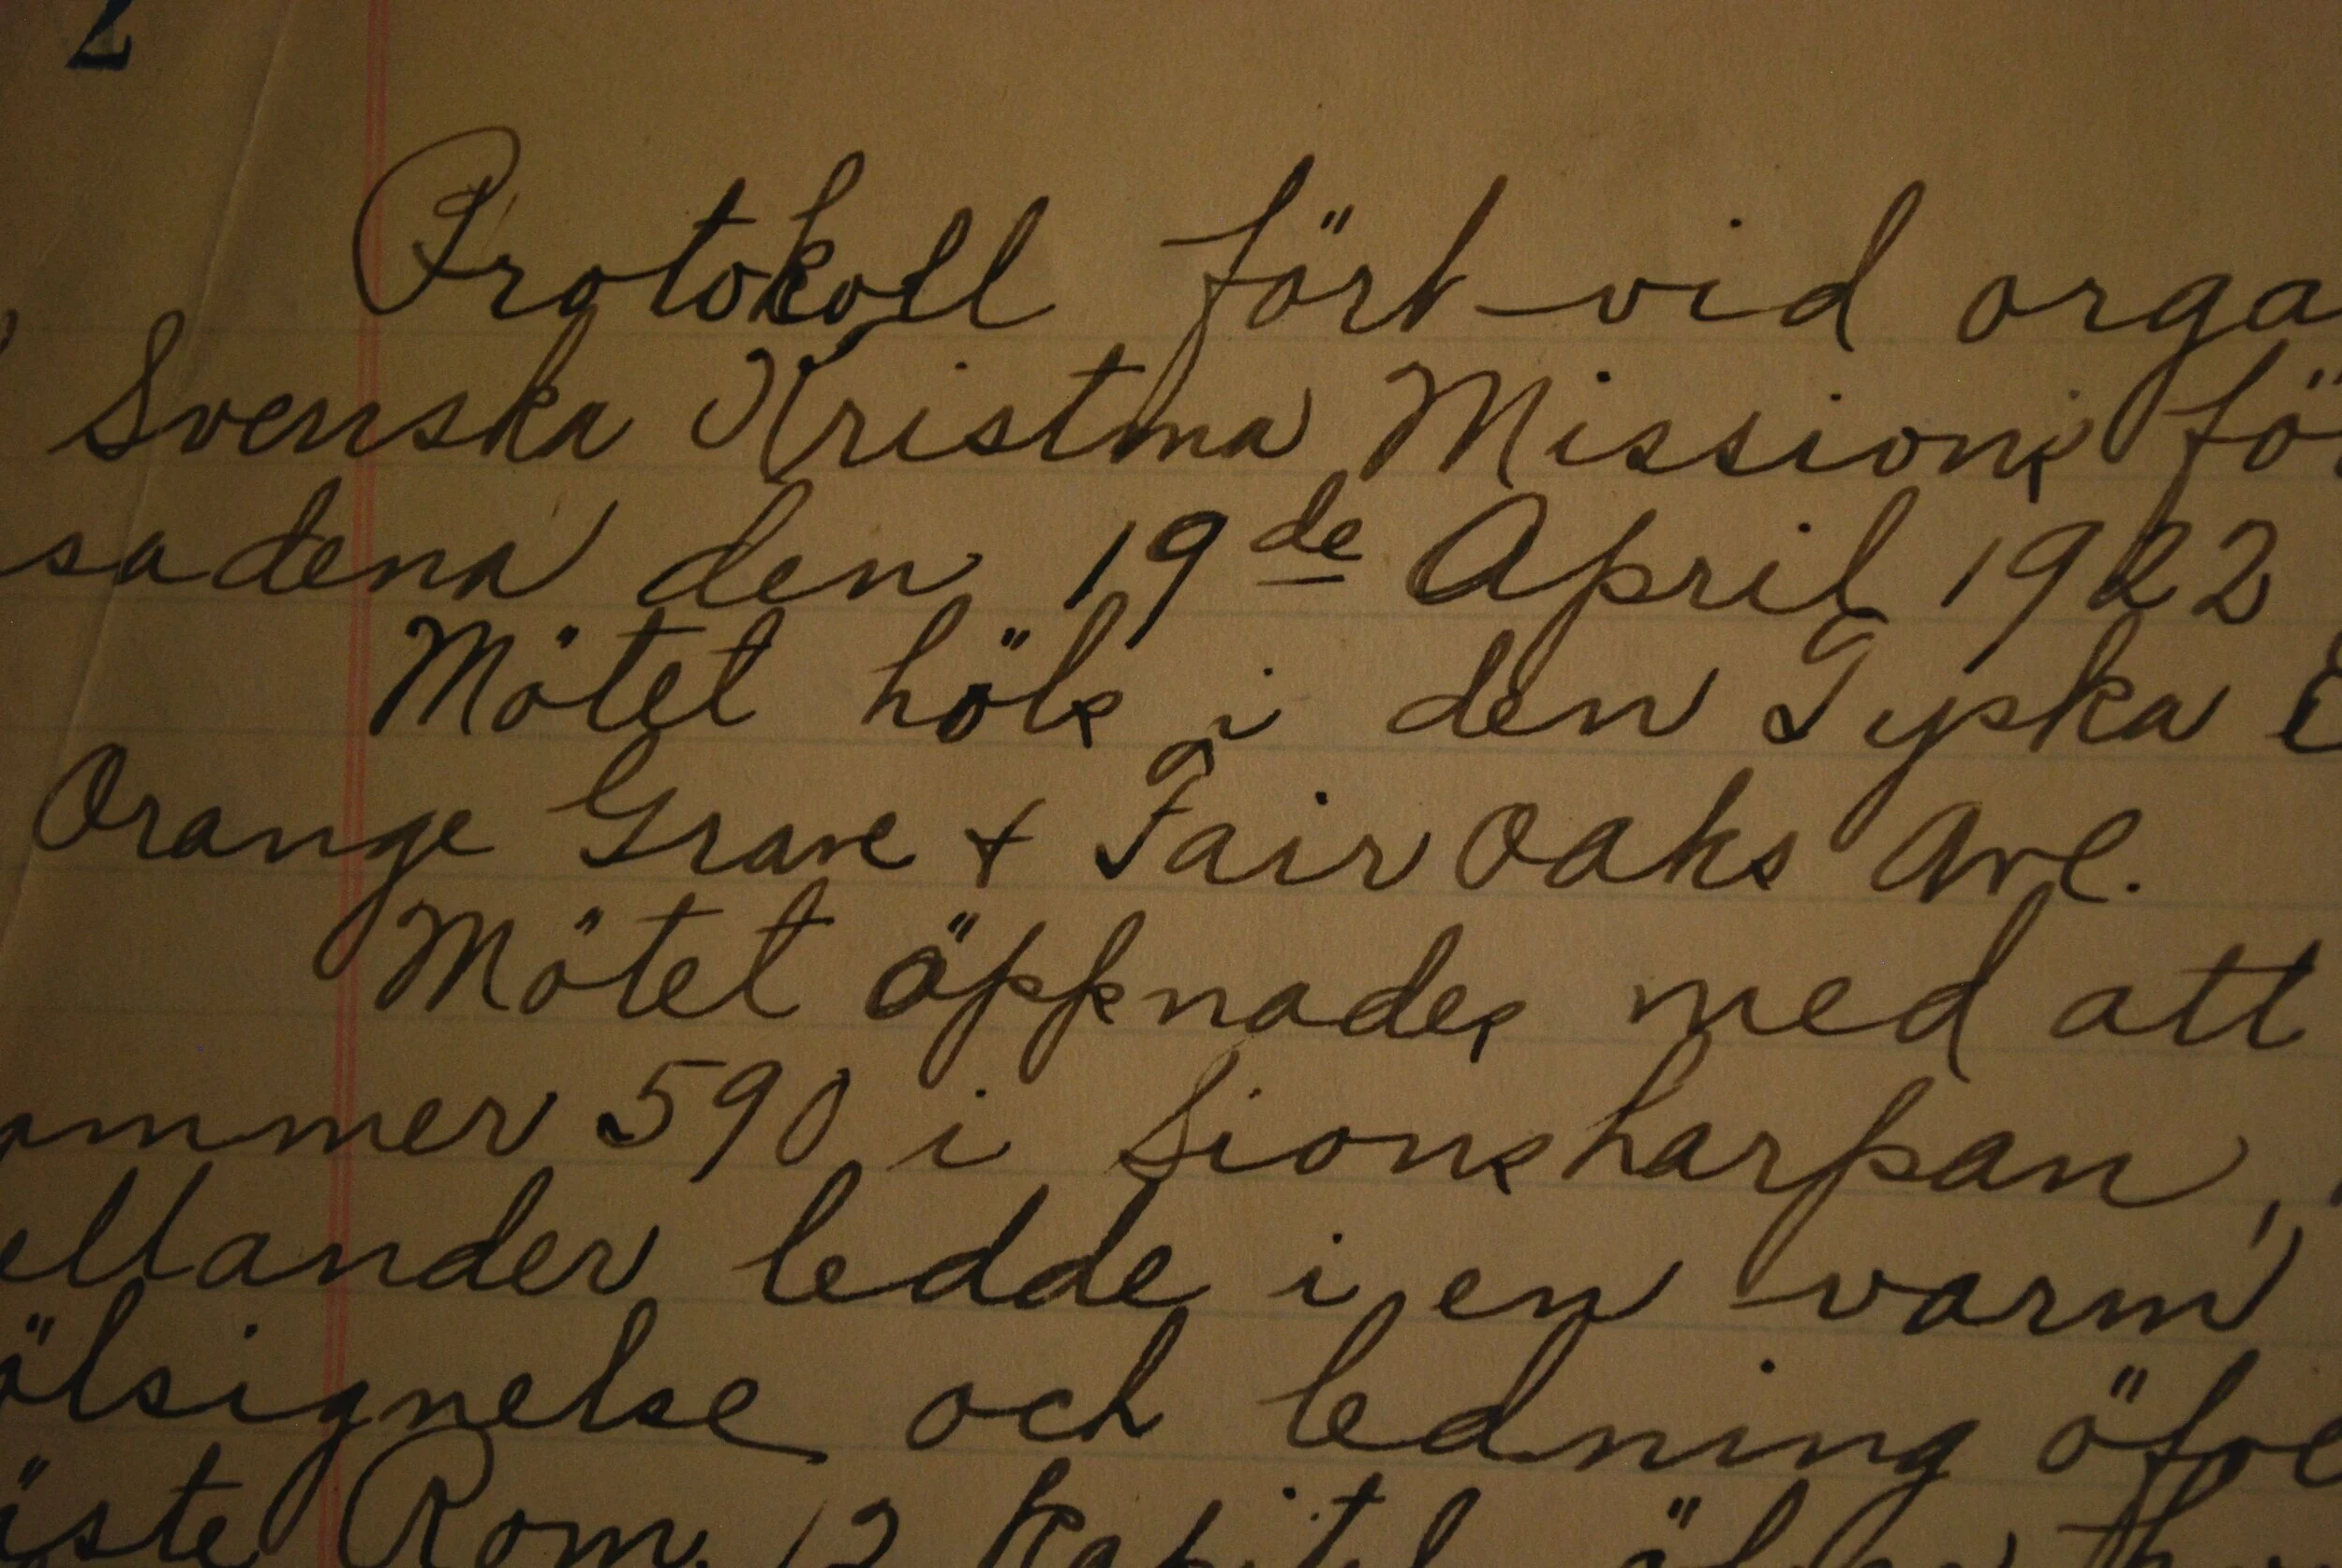 2
Protokoll fört vid orga
Svenska Kristna Missions fö
sadena den 19de April 1922
Mötet höls i den Tyska
Orange Grave + Fair Oaks Ave.
Mötet öppnades med att
ummer 590 i Sionsharpan,
ellander ledde i en varm
älsignelse och ledning öfve
äste Rom. 12 Kapitel